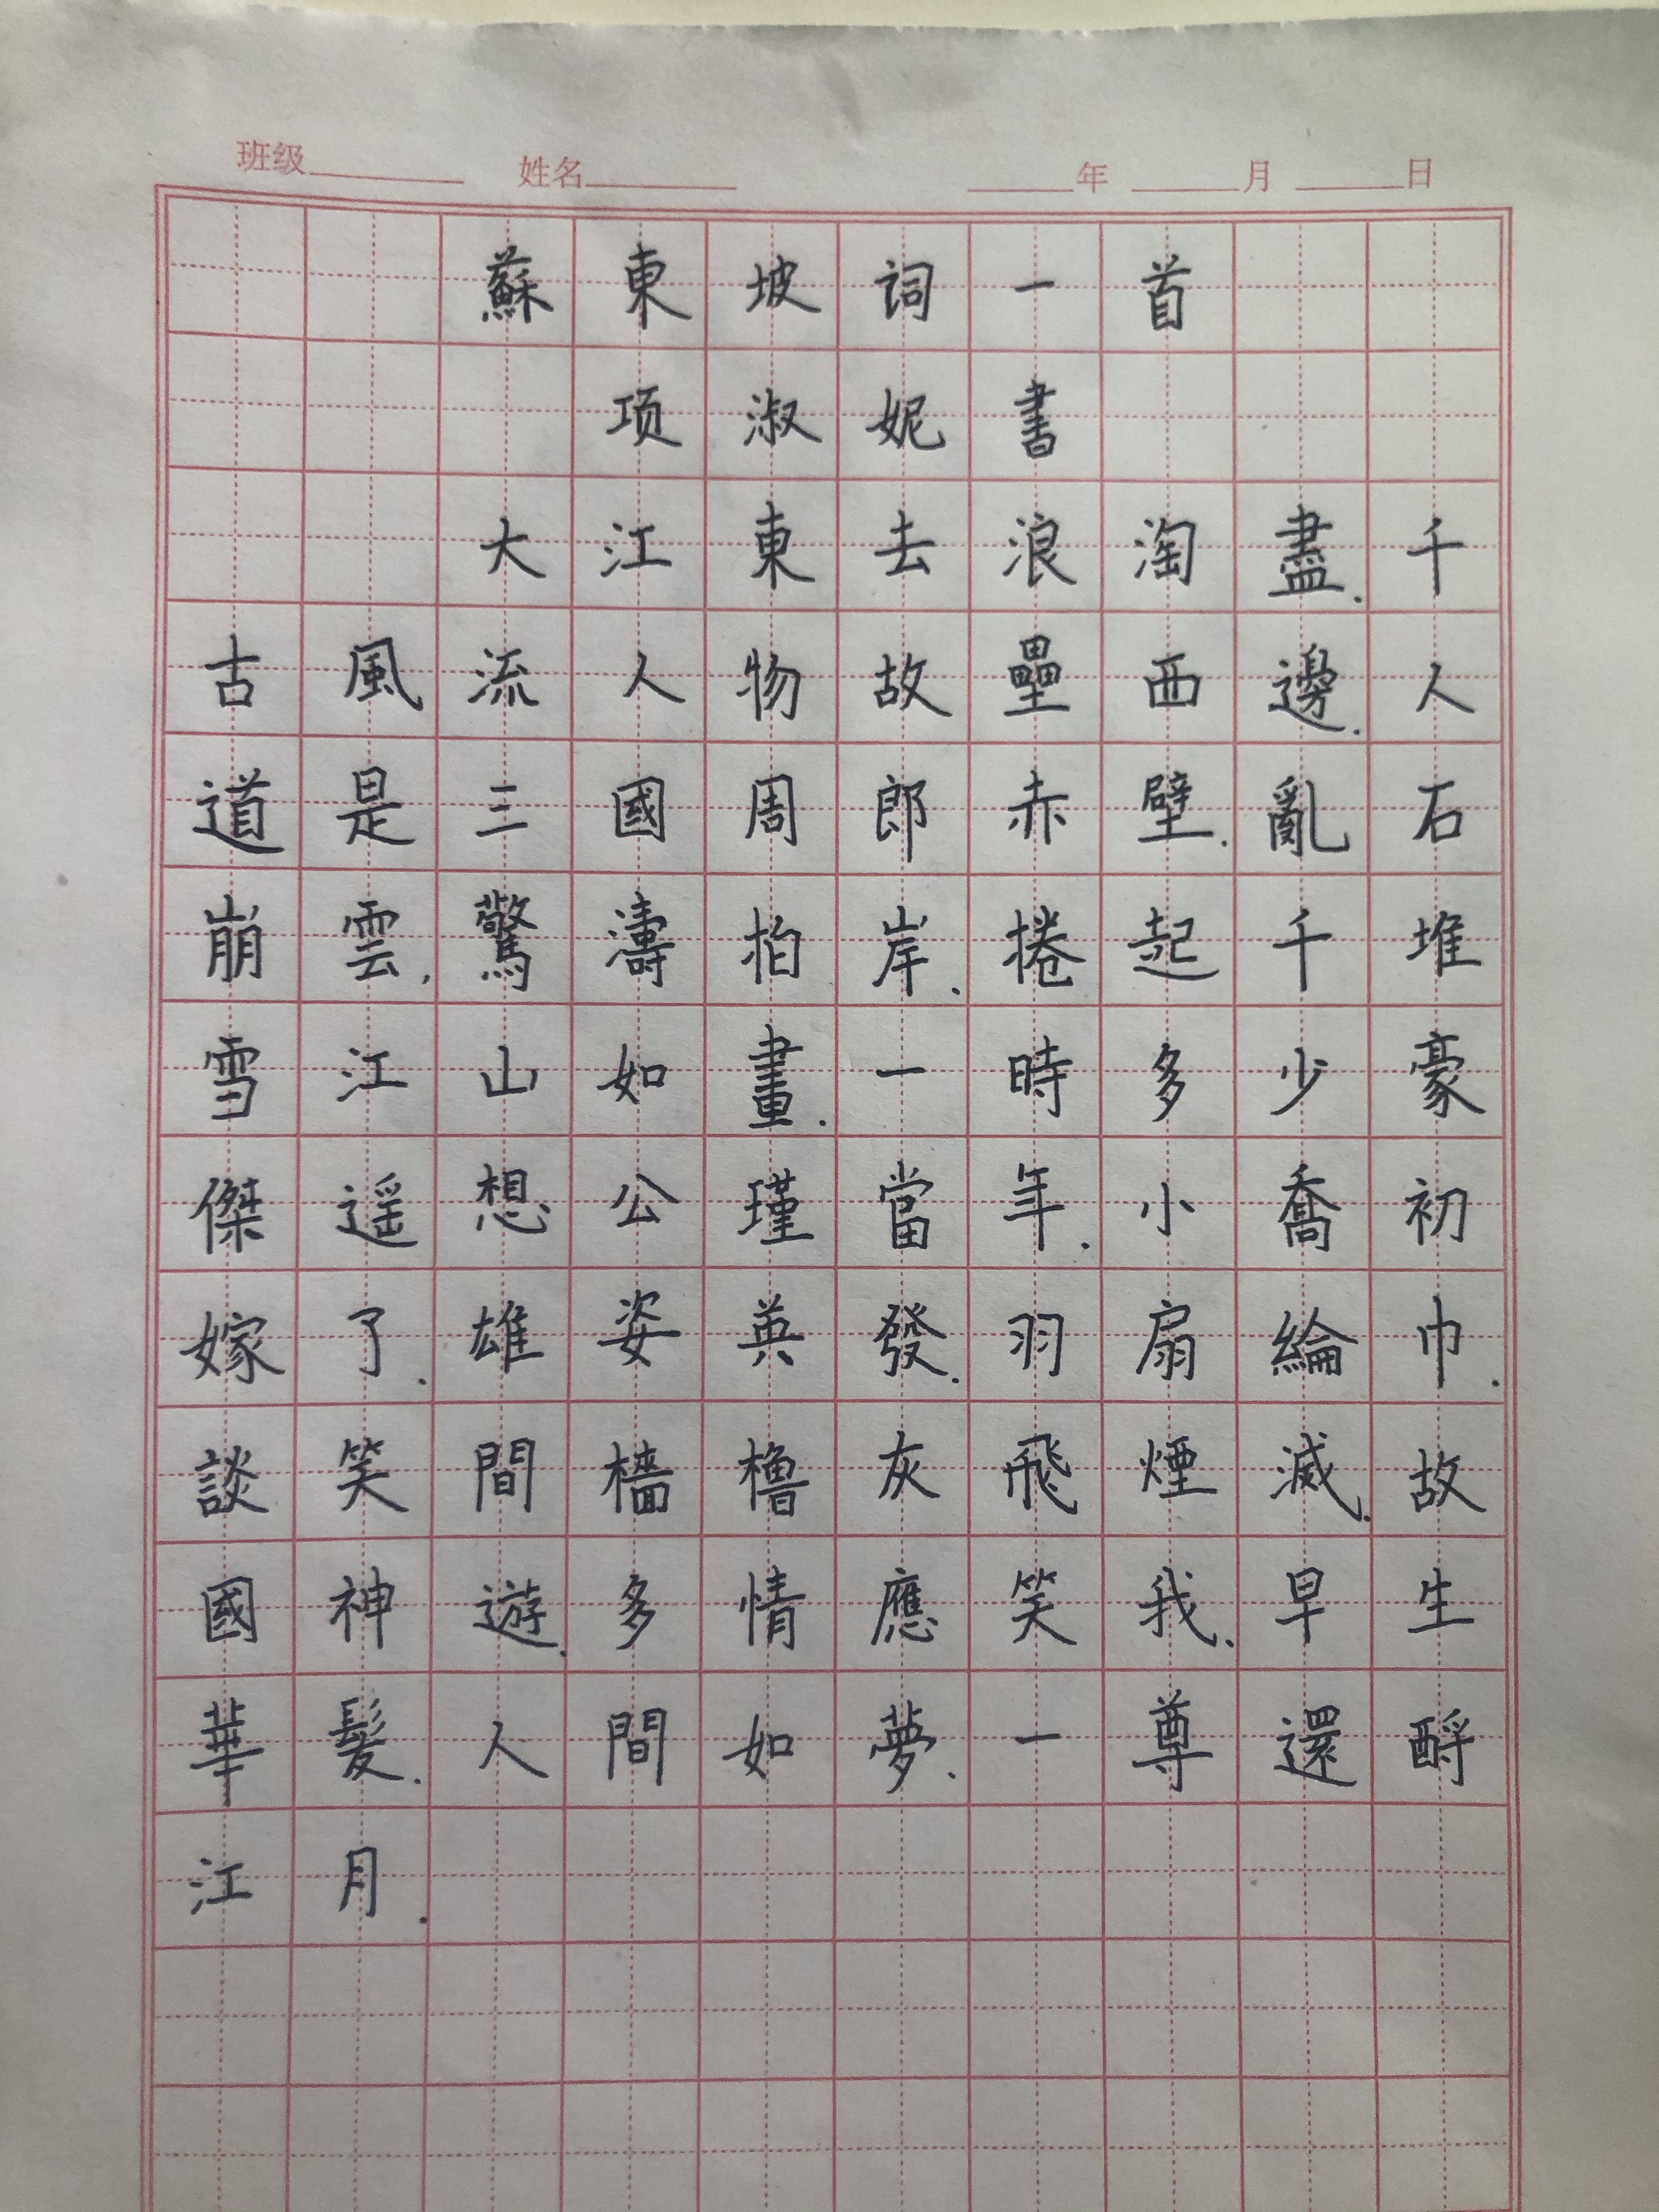 班级 姓名 年 月 日
蘇東坡词一首
项淑妮書
大江東去浪淘盡.千
古風流人物故壘西邊.人
道是三國周郎赤壁.亂石
崩雲.驚濤拍岸.捲起千堆
雪江山如畫.一時多少豪
傑遥想公瑾當年.小喬初
嫁了.雄姿英發.羽扇綸巾.
談笑間檣櫓灰飛煙滅.故
國神遊.多情應笑我.早生
華髮.人間如夢.一尊還酹
江月.